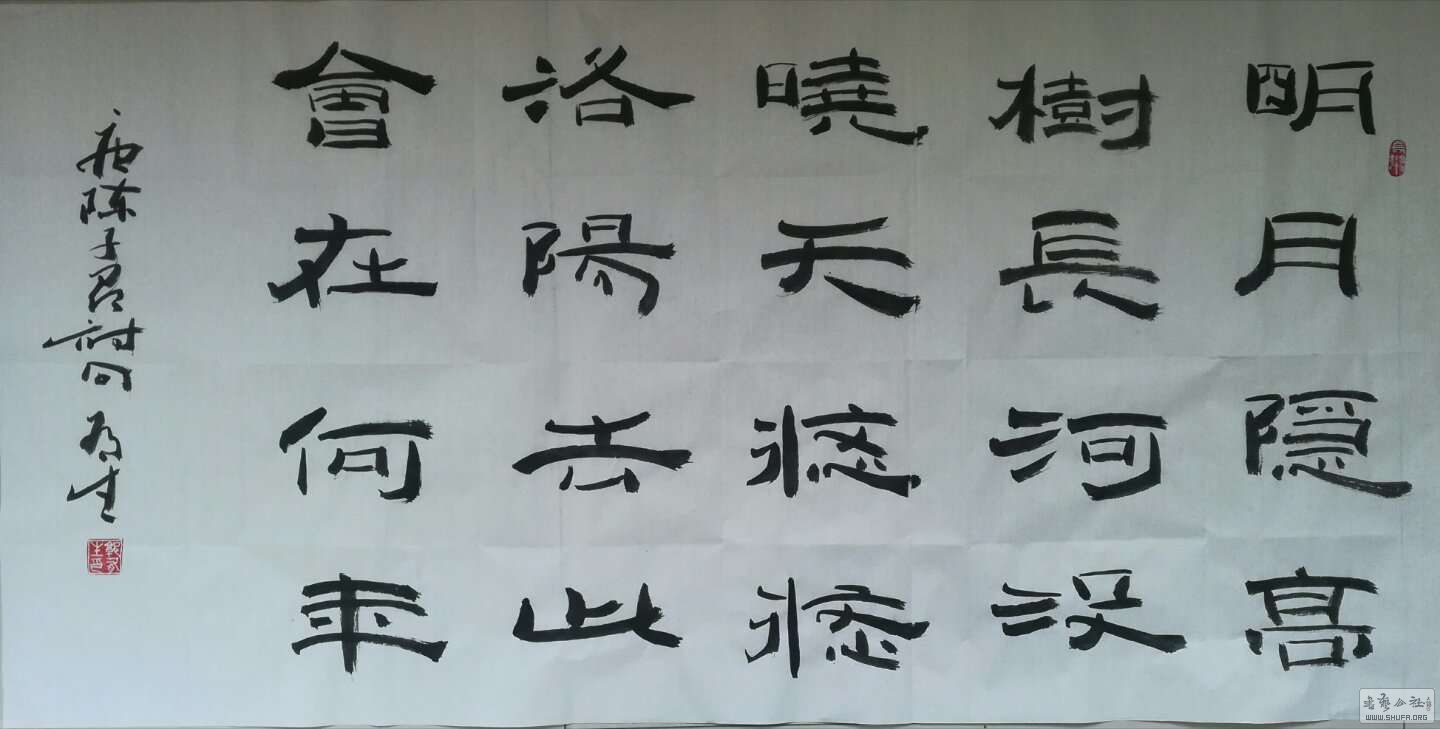 明月隐高
樹長河没
曉天悠悠
洛陽去此
會在何年
唐陈子昂詩句
书艺公社
WWW.SHUFA.ORG